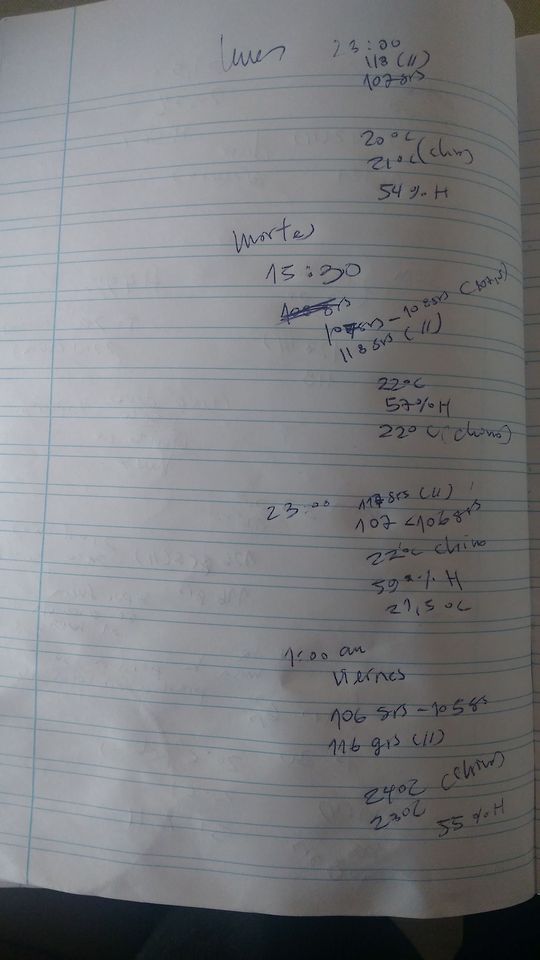 lunes 23:00
118 (11)
107 grs
20°C
21°C (chino)
54 % H
Martes
15:30
107 grs - 108 grs (107,5)
118 grs (11)
22°C
57% H
22°C (chino)
23:00 117 grs (11)
107 < 106 grs
22°C chino
59 % H
21,5 °C
1:00 am
Viernes
106 grs - 105 grs
116 grs (11)
24°C (chino)
23°C 55 % H